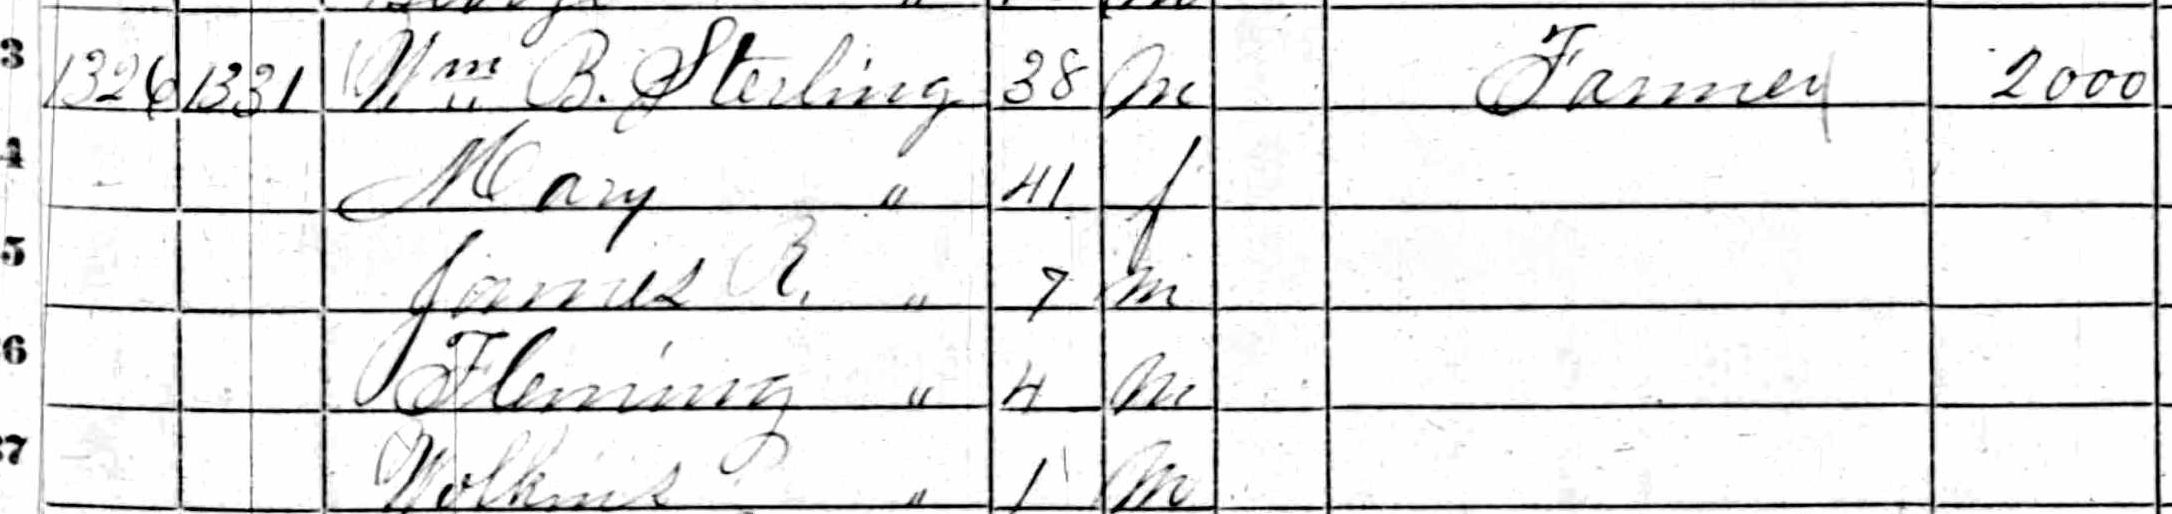 3 1326 1331 Wm B. Sterling 38 m Farmer 2000
4 Mary " 41 f
5 James R. " 7 m
6 Fleming " 4 m
37 " 1 m